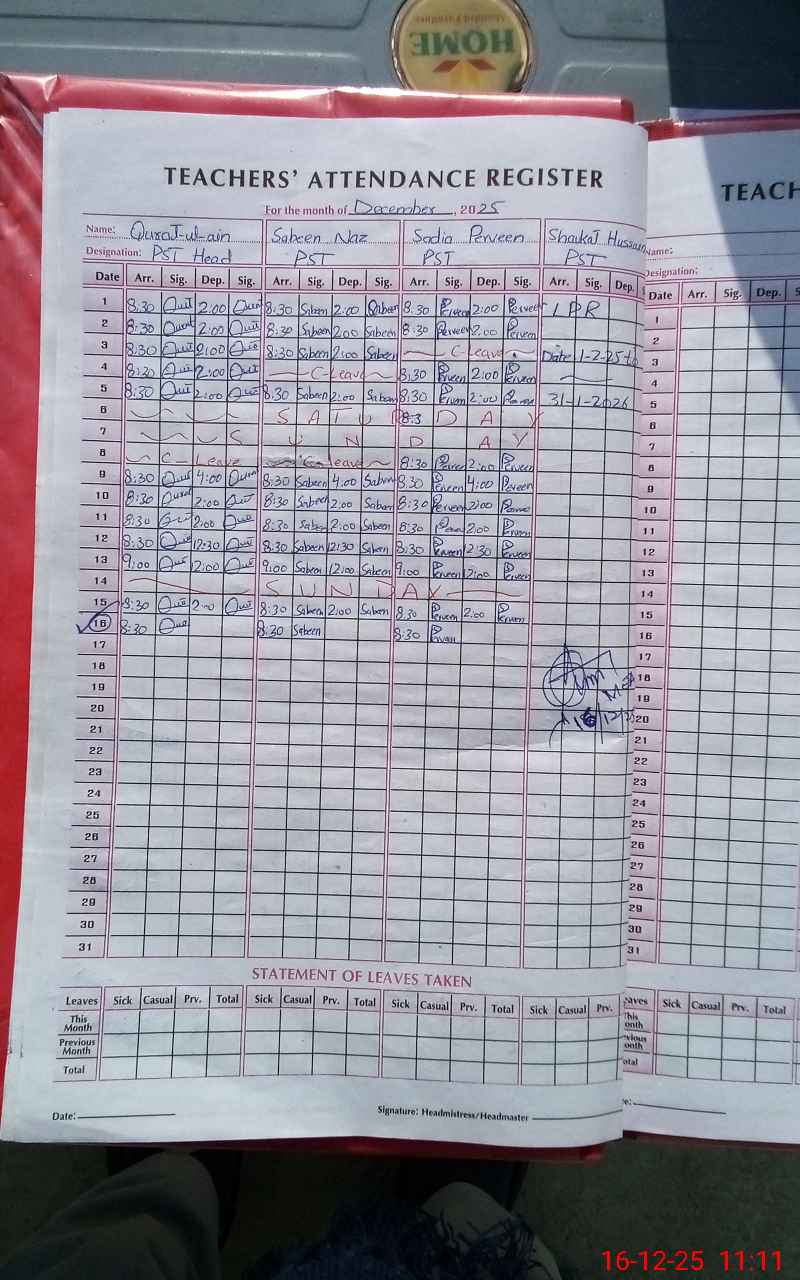 HOME
TEACHERS' ATTENDANCE REGISTER
TEACH
For the month of December, 2025
Name: Qurat-ul-ain Sabeen Naz Sadia Perveen Shaukat Hussain Name:
Designation: PST Head PST PST PST Designation:
Date Arr. Sig. Dep. Sig. Arr. Sig. Dep. Sig. Arr. Sig. Dep. Sig. Arr. Sig. Dep. Date Arr. Sig. Dep. S
1 8:30 Qurat 2:00 Qurat 8:30 Sabeen 2:00 Sabeen 8:30 Perveen 2:00 Perveen LPR 1
2 8:30 Qurat 2:00 8:30 Sabeen 2:00 Sabeen 8:30 Perveen 2:00 Perveen 2
3 8:30 2:00 8:30 Sabeen 2:00 Sabeen C-Leave Date 1-2-25 to 3
4 8:30 2:00 C-Leave 8:30 Perveen 2:00 Perveen 4
5 8:30 2:00 8:30 Sabeen 2:00 Sabeen 8:30 2:00 31-1-2026 5
6 SATURDAY 8:3 6
7 SUNDAY 7
8 C-Leave C-leave 8:30 2:00 Perveen 8
9 8:30 4:00 8:30 Sabeen 4:00 Sabeen 8:30 Perveen 4:00 Perveen 9
10 8:30 Qurat 2:00 8:30 Sabeen 2:00 Sabeen 8:30 Perveen 2:00 10
11 8:30 2:00 8:30 Sabeen 2:00 Sabeen 8:30 2:00 Perveen 11
12 8:30 12:30 8:30 Sabeen 12:30 Sabeen 8:30 Perveen 12:30 Perveen 12
13 9:00 12:00 9:00 Sabeen 12:00 Sabeen 9:00 Perveen 12:00 Perveen 13
14 SUNDAY 14
15 8:30 2:00 8:30 Sabeen 2:00 Sabeen 8:30 Perveen 2:00 Perveen 15
16 8:30 8:30 Sabeen 8:30 Perveen 16
17 17
18 18
19 19
20 16/12/25 20
21 21
22 22
23 23
24 24
25 25
26 26
27 27
28 28
29 29
30 30
31 31
STATEMENT OF LEAVES TAKEN
Leaves Sick Casual Prv. Total Sick Casual Prv. Total Sick Casual Prv. Total Sick Casual Prv. eaves Sick Casual Prv. Total
This Month
Previous Month
Total
Date: Signature: Headmistress/Headmaster
16-12-25 11:11